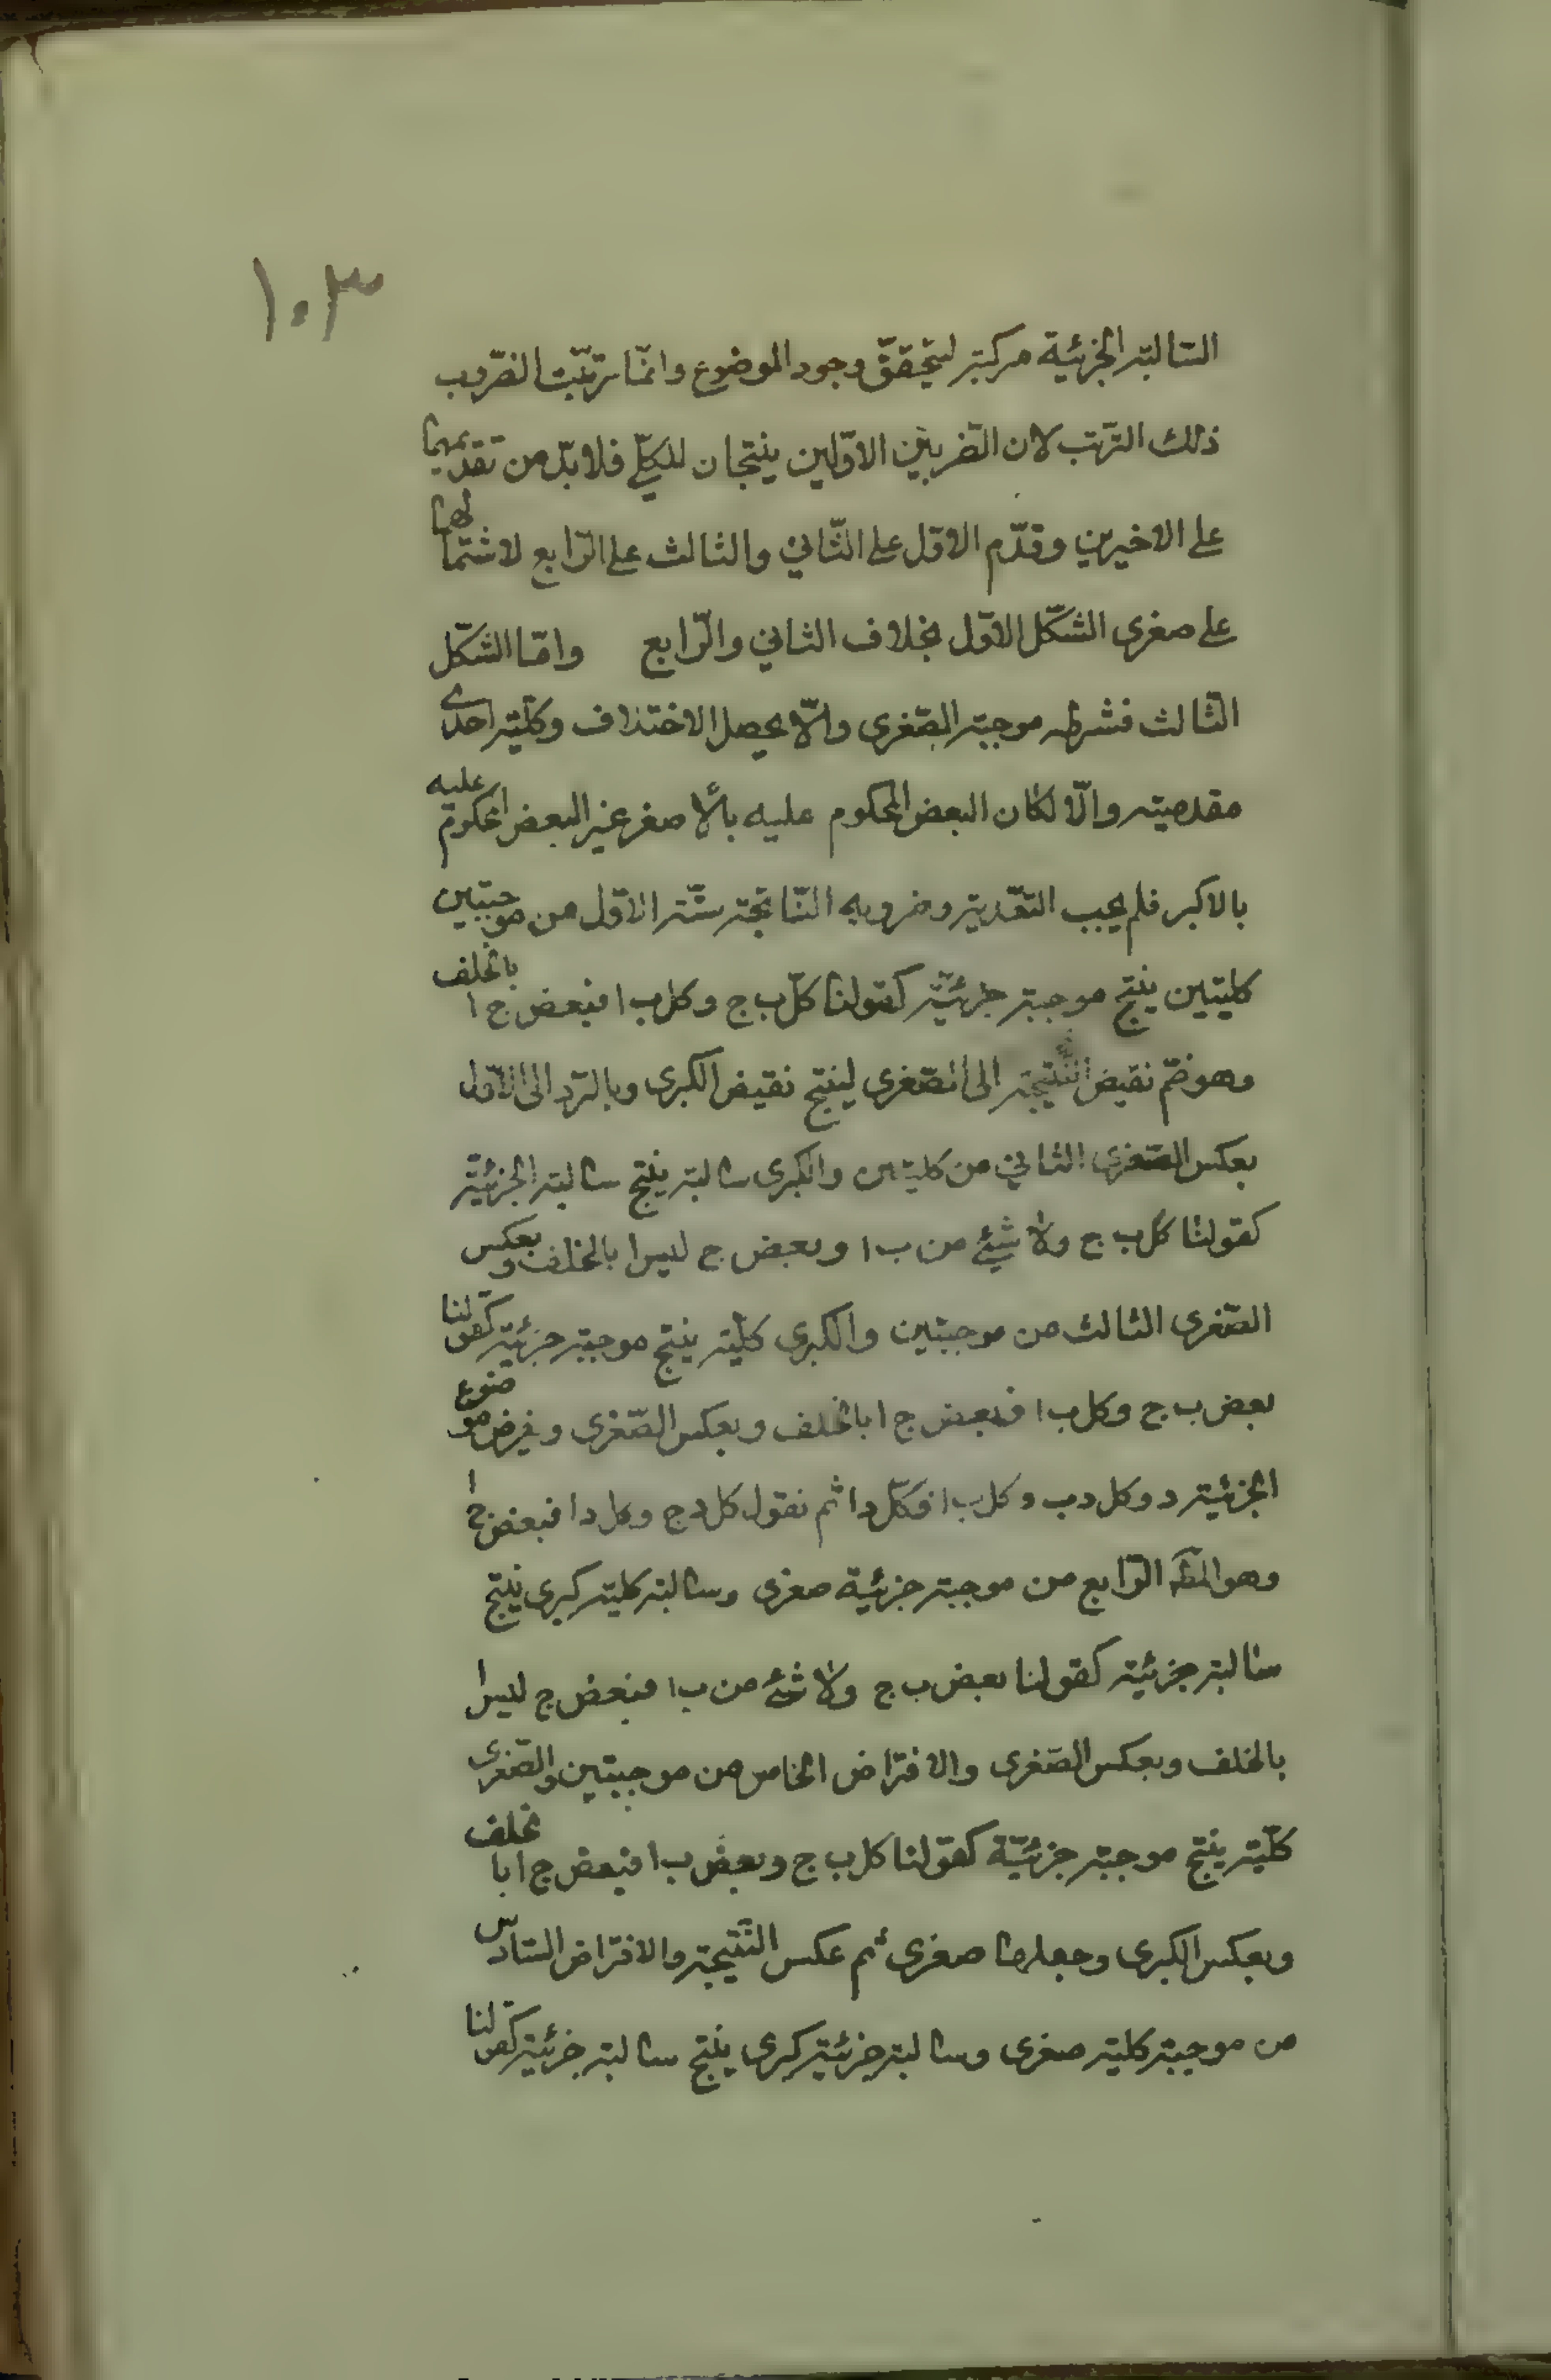 ١٠٣
السالبة الجزئية مركبة ليتحقق وجود الموضوع وانما ترتبت الضروب
ذلك الترتب لان الضربين الاولين ينتجان للكلي فلا بد من تقديمهما
على الاخيرين وقدم الاول على الثاني والثالث على الرابع لاشتمالهما
على صغرى الشكل الاول بخلاف الثاني والرابع واما الشكل
الثالث فشرطه موجبة الصغرى والا يحصل الاختلاف وكلية احدى
مقدميته والا لكان البعض المحكوم عليه بالاصغر غير البعض المحكوم عليه
بالاكبر فلم يجب التعدية وضروبه الناتجة ستة الاول من موجبتين
كليتين ينتج موجبة جزئية كقولنا كل ب ج وكل ب ا فبعض ج ا بالخلف
وهو ضم نقيض النتيجة الى الصغرى لينتج نقيض الكبرى وبالرد الى الاول
بعكس الصغرى الثاني من كليتين والكبرى سالبة ينتج سالبة الجزئية
كقولنا كل ب ج ولا شيئ من ب ا وبعض ج ليس ا بالخلف وبعكس
الصغرى الثالث من موجبتين والكبرى كلية ينتج موجبة جزئية كقولنا
بعض ب ج وكل ب ا فبعض ج ا بالخلف وبعكس الصغرى وفرض موضوع
الجزئية د وكل د ب وكل ب ا فكل د ا ثم نقول كل د ج وكل د ا فبعض ج ا
وهو المط الرابع من موجبة جزئية صغرى وسالبة كلية كبرى ينتج
سالبة جزئية كقولنا بعض ب ج ولا شئ من ب ا فبعض ج ليس ا
بالخلف وبعكس الصغرى والافتراض الخامس من موجبتين والصغرى
كلية ينتج موجبة جزئية كقولنا كل ب ج وبعض ب ا فبعض ج ا بالخلف
وبعكس الكبرى وجعلها صغرى ثم عكس النتيجة والافتراض السادس
من موجبة كلية صغرى وسالبة جزئية كبرى ينتج سالبة جزئية كقولنا